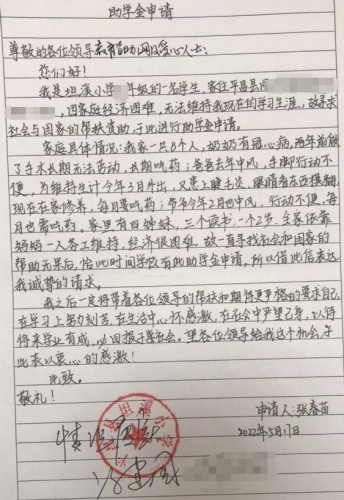 助学金申请
尊敬的各位领导教育部门及爱心人士:
您们好!
我是坦溪小学 年级的一名学生,家住平昌县
,因家庭经济困难,无法维持我现在的学习生涯,故寻求
社会与国家的帮扶资助,于此进行助学金申请。
家庭具体情况:我家一共8个人,奶奶有冠心病,两年前做
了手术长期无法劳动,长期吃药;爸爸去年中风,手脚行动不
便,为维持生计今年2月外出,又患上腱毛炎,眼睛看东西模糊
现在在家修养,每月要吃药;爷爷今年2月也中风,行动不便,每
月也需吃药。家里有四姊妹,三个读书,一个2岁,全家依靠
妈妈一人务工维持,经济很困难,故一直寻找社会和国家的
帮助无果后,恰此时间学校有此助学金申请,所以借此信表达
我诚挚的请求。
我之后一定将带着各位领导的帮扶和期待更严格的要求自己
在学习上努力刻苦,在生活中心怀感激,在社会中严望己身,以待
将来学业有成,必回报于社会。望各位领导给我这个机会,于
此表以衷心的感激!
此致。
敬礼!
申请人:张春苗
2022年5月17日
情况属实
县坦溪小学